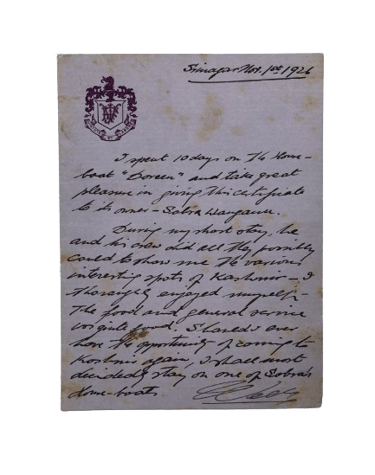 Srinagar Nov. 1st 1926
I spent 10 days on the House-
boat "Doreen" and take great
pleasure in giving this certificate
to its owner - Sobra Wangnu.
During my short stay, he
and his crew did all they possibly
could to show me the various
interesting spots of Kashmir - I
thoroughly enjoyed myself.
The food and general service
was quite good. Should I ever
have the opportunity of coming to
Kashmir again, I shall most
decidedly stay on one of Sobra's
House-boats